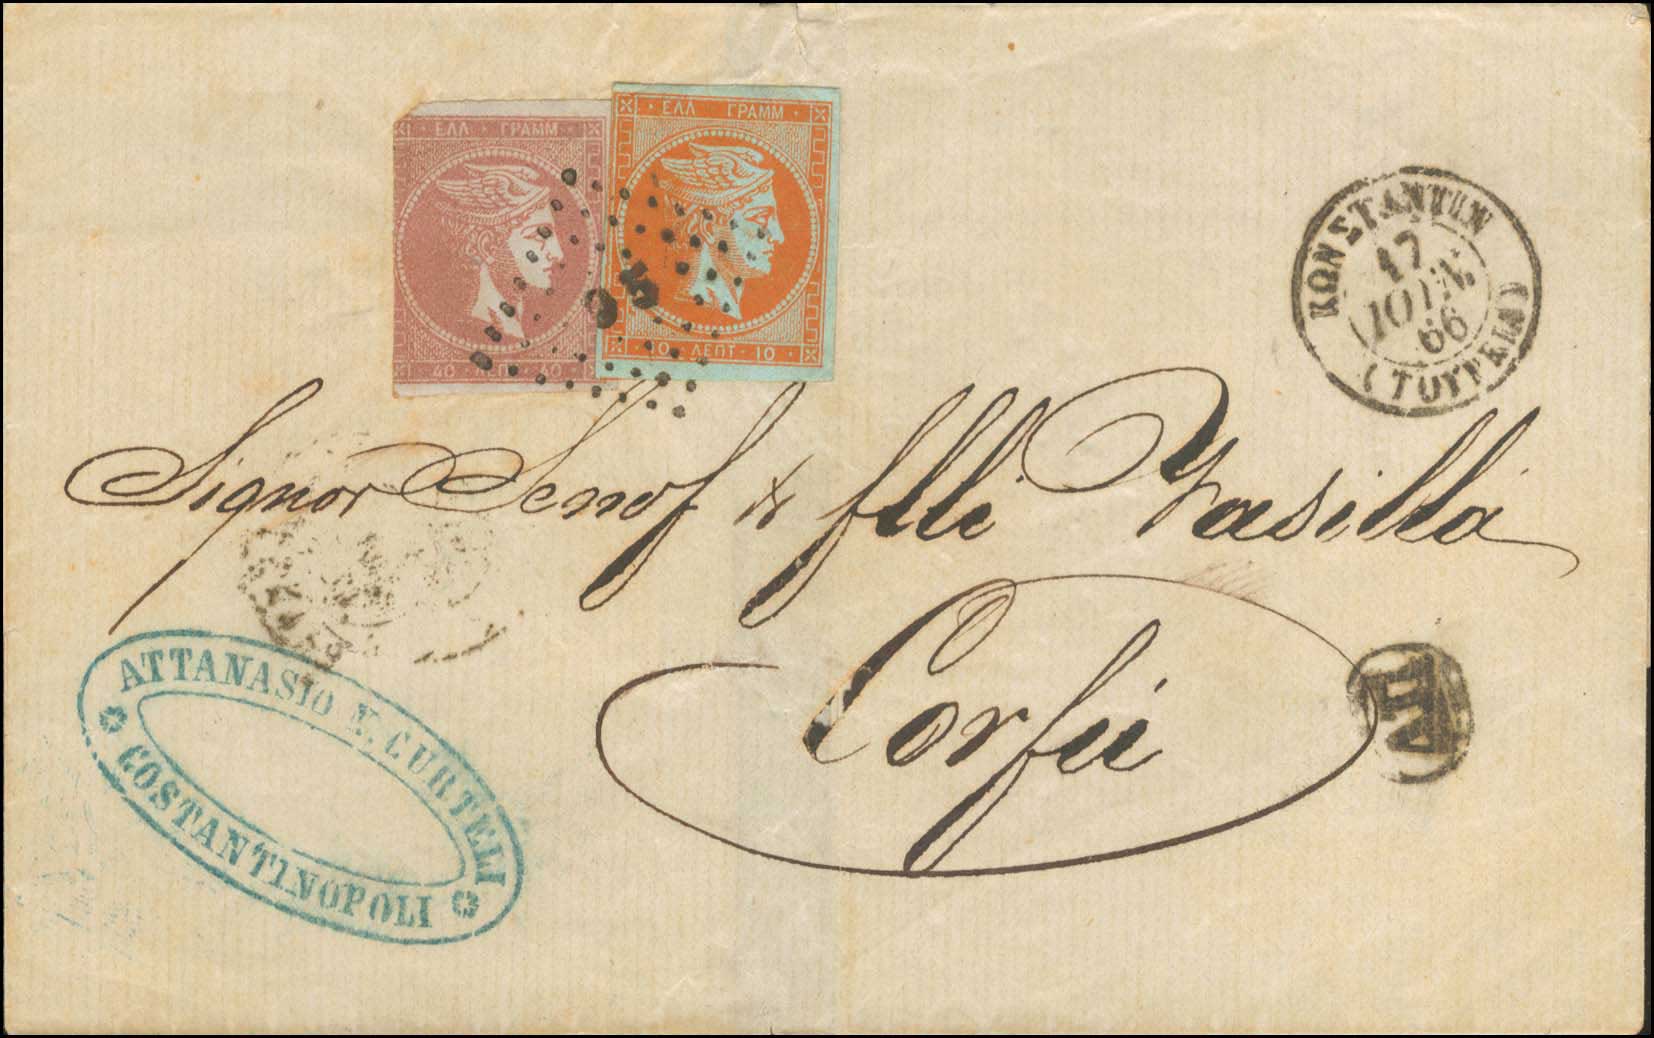 ΕΛΛ ΓΡΑΜΜ
40 ΛΕΠΤ 40
ΕΛΛ ΓΡΑΜΜ
10 ΛΕΠΤ 10
95
ΚΩΝΣΤΑΝΤΙΝ
17
ΙΟΥΝ.
66
(ΤΟΥΡΚΙΑ)
Signor
& flli Vasilla
Corfú
ATTANASIO N. CURTELI
COSTANTINOPOLI